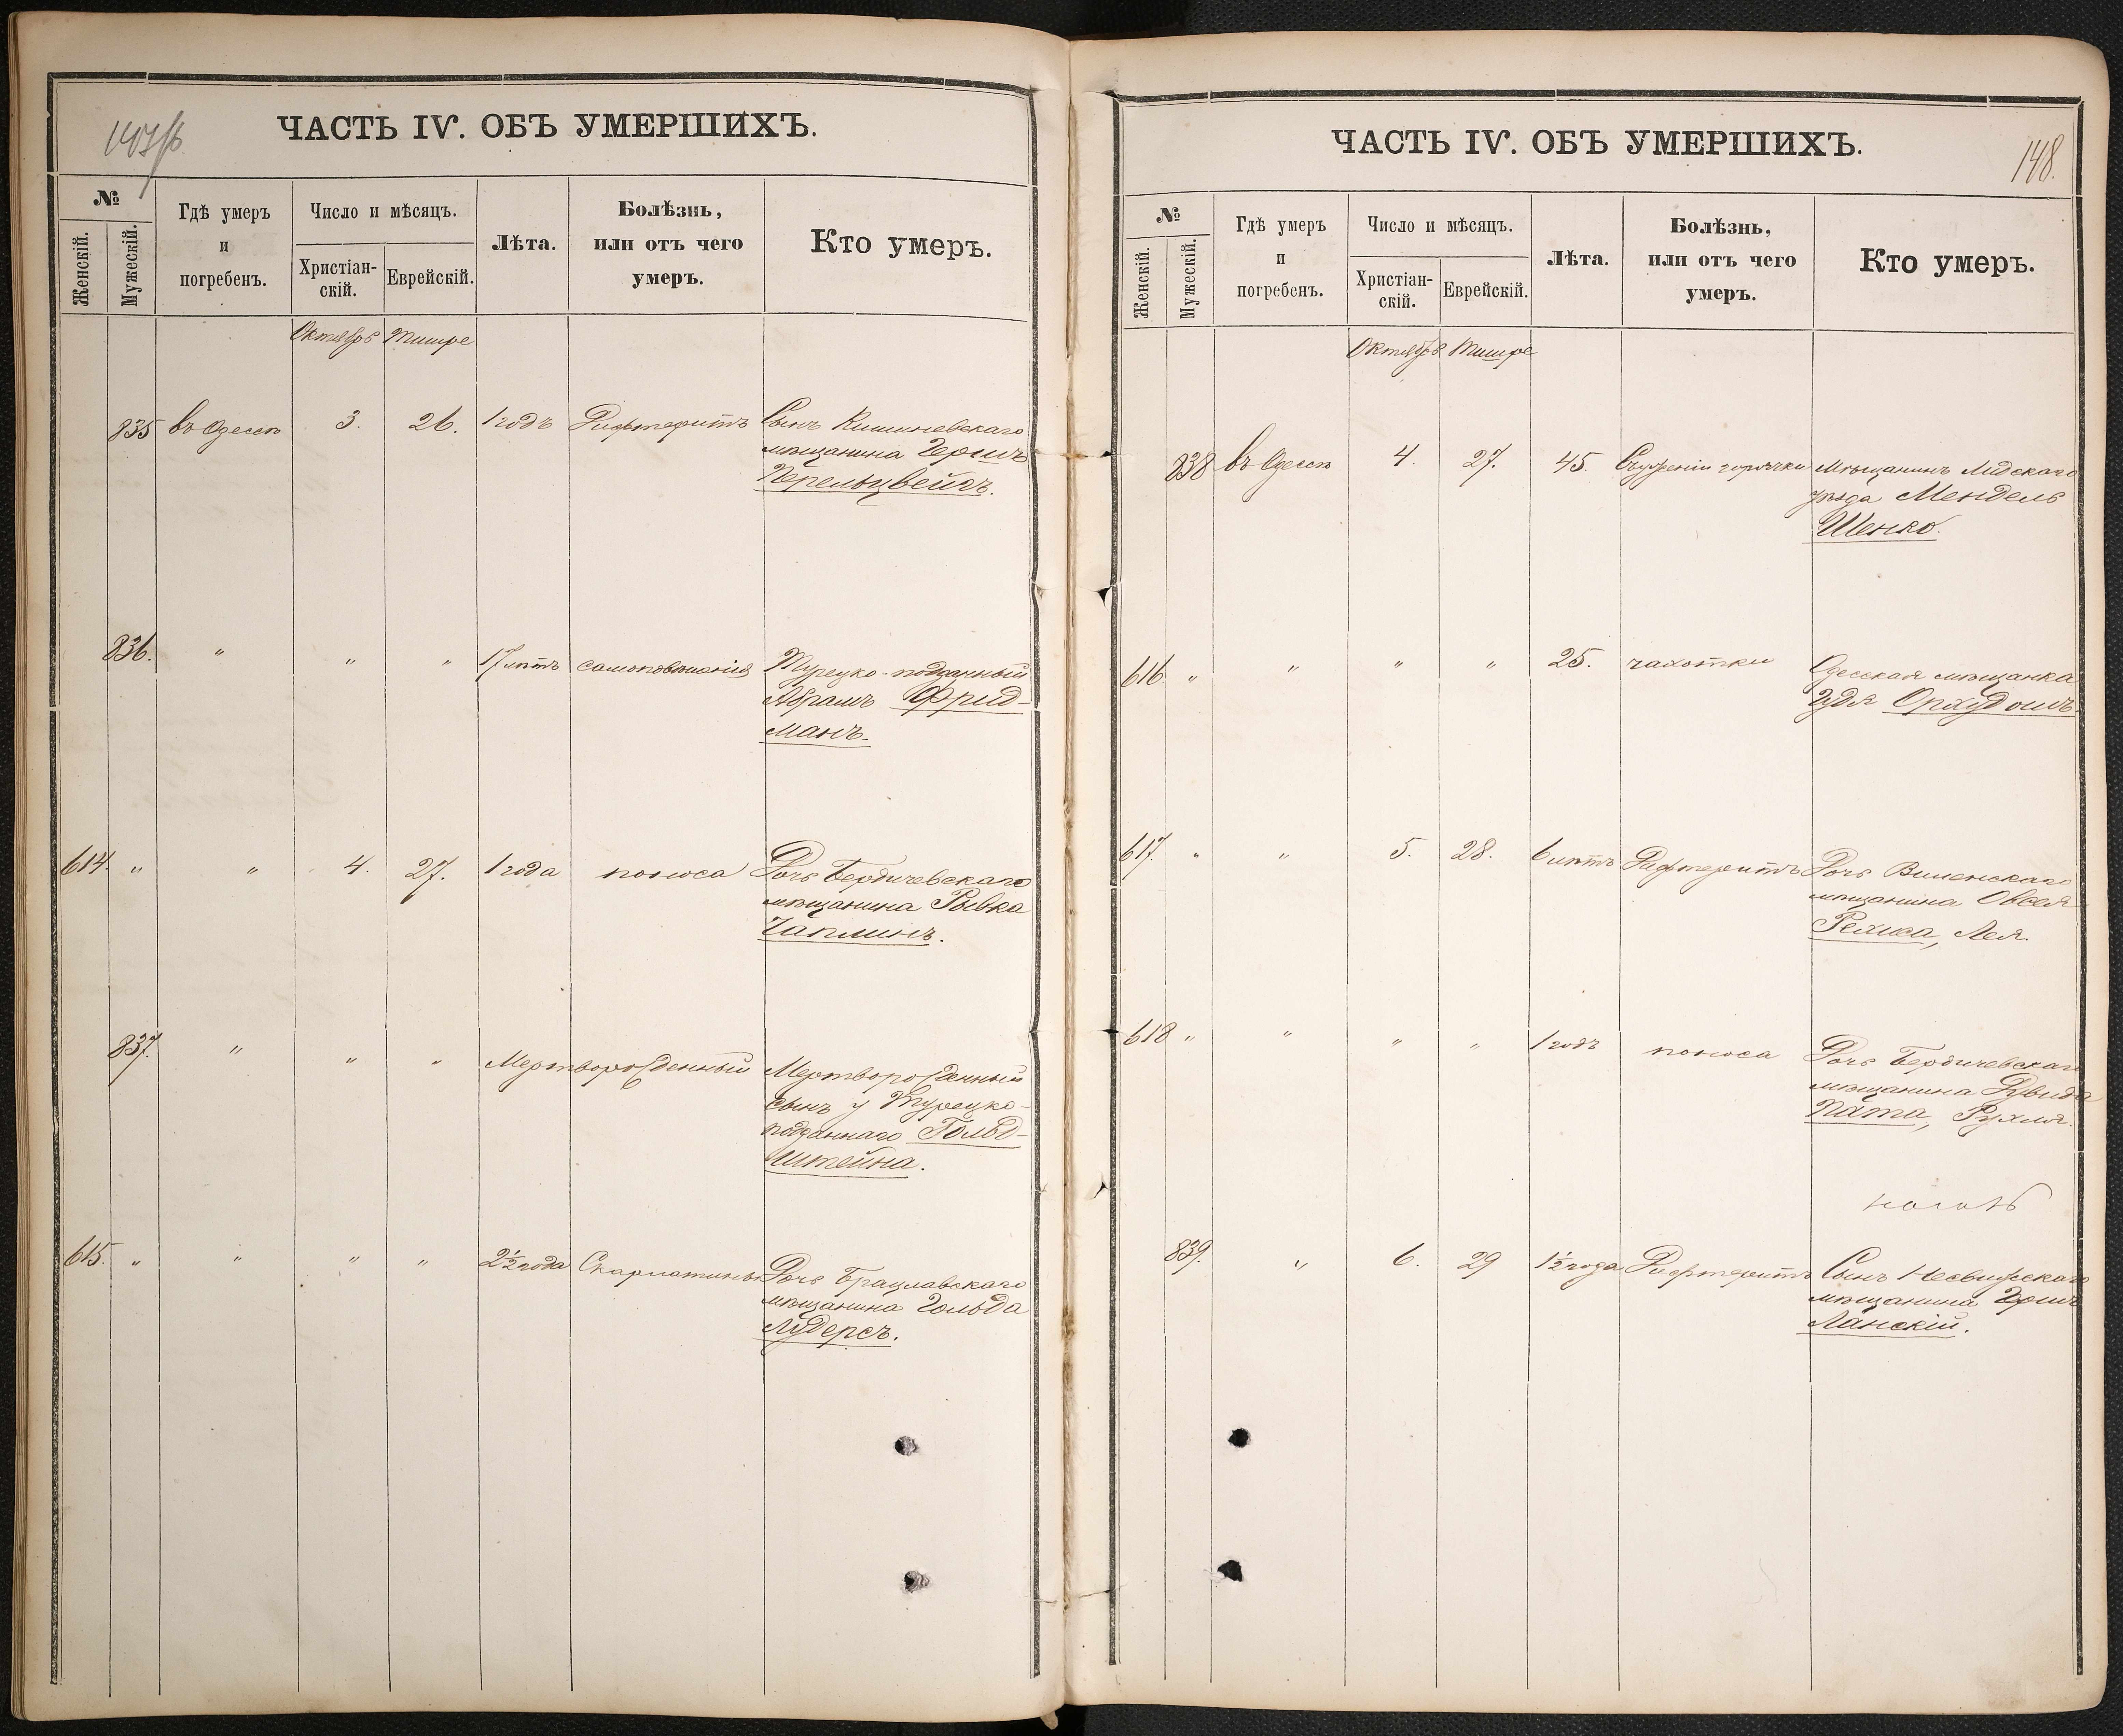 ЧАСТЬ IV. ОБЪ УМЕРШИХЪ.
№
Женскій.
Мужескій.
Гдѣ умеръ
и
погребенъ.
Число и мѣсяцъ.
Христіан-
скій.
Еврейскій.
Лѣта.
Болѣзнь,
или отъ чего
умеръ.
Кто умеръ.
Октябрь Тишре
835 въ Одессѣ 3. 26. 1 годъ Дифтеритъ Сынъ Кишиневскаго
мѣщанина Гершъ
Перельцвейгъ.
836. " " " 17 лѣтъ самоповѣшенія Турецко-подданный
Абрамъ Фрид-
манъ.
614. " " 4. 27. 1 года поноса Дочь Бердичевскаго
мѣщанина Рывка
Чаплинъ.
837. " " " Мертворожденный Мертворожденный
сынъ у Турецко-
подданнаго Гольд-
штейна.
615. " " " " 2½ года Скарлатины Дочь Брацлавскаго
мѣщанина Гольда
Лудерсъ.
ЧАСТЬ IV. ОБЪ УМЕРШИХЪ.
148.
№
Женскій.
Мужескій.
Гдѣ умеръ
и
погребенъ.
Число и мѣсяцъ.
Христіан-
скій.
Еврейскій.
Лѣта.
Болѣзнь,
или отъ чего
умеръ.
Кто умеръ.
Октябрь Тишре
838 въ Одессѣ 4. 27. 45. горячки Мѣщанинъ Лидскаго
уѣзда Мендель
Шенко.
616. " " " " 25. чахотки Одесская мѣщанка
Гудя
617. " " 5. 28. 6 лѣтъ Дифтеритъ Дочь Виленскаго
мѣщанина Овсея
Рехиса, Лея.
618 " " " " 1 годъ поноса Дочь Бердичевскаго
мѣщанина Дувида
Пата, Рухля.
839. " 6. 29 1½ года Дифтеритъ Сынъ Несвижскаго
мѣщанина Гершъ
Ланскій.